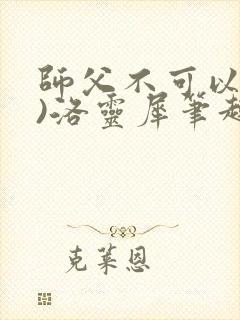 師父不可以
)洛靈犀筆趣
克萊恩